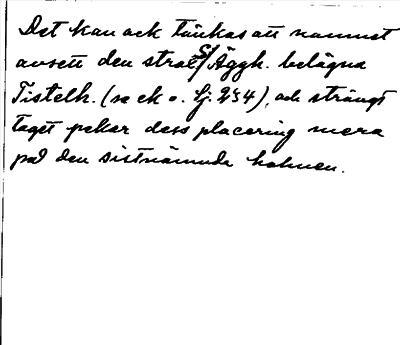 Det kan ock tänkas att namnet
avsett den strax S/ Äggh. belägna
Tistelh. (se ek o. Lj. 254), och strängt
taget pekar dess placering mera
på den sistnämnda holmen.